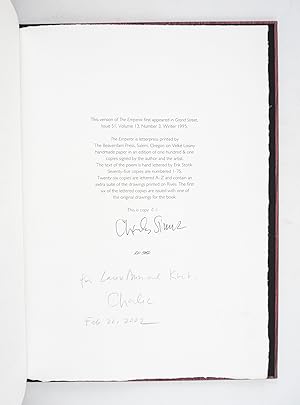 This version of The Emperor first appeared in Grand Street,
Issue 51, Volume 13, Number 3, Winter 1995.
The Emperor is letterpress printed by
The Beaverdam Press, Salem, Oregon on Velke Losiny
handmade paper in an edition of one hundred & one
copies signed by the author and the artist.
The text of the poem is hand lettered by Erik Stotik
Seventy-five copies are numbered 1-75.
Twenty-six copies are lettered A-Z and contain an
extra suite of the drawings printed on Rives. The first
six of the lettered copies are issued with one of
the original drawings for the book.
This is copy
Charles Simic
for
Charlie
Feb 26, 2002